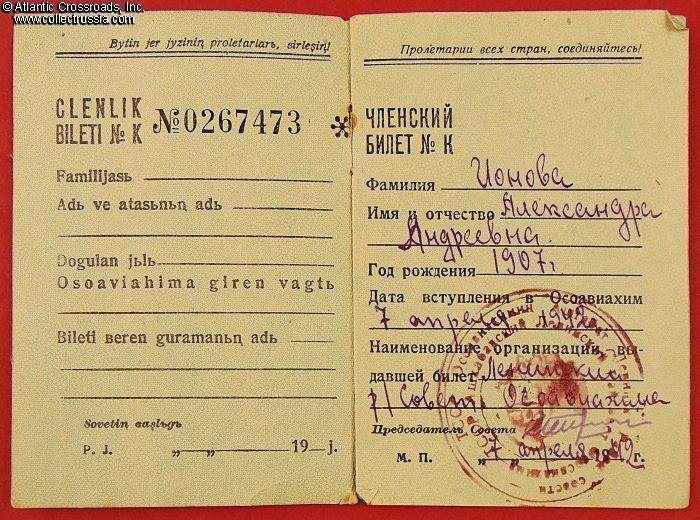 © Atlantic Crossroads, Inc.
www.collectrussia.com
Bytin jer jyziniꞑ proletarlarь, birleşiꞑ!
CLENLIK
BILETI № K №0267473
Familijasь
Adь ve atasьnьꞑ adь
Dogulan jьlь
Osoaviahima giren vagtь
Bileti beren guramanьꞑ adь
Sovetiꞑ başlьgь
P. J. „ “ 19 j.
Пролетарии всех стран, соединяйтесь!
ЧЛЕНСКИЙ
БИЛЕТ № К
Фамилия Ионова
Имя и отчество Александра
Андреевна.
Год рождения 1907г.
Дата вступления в Осоавиахим
7 апреля 1942
Наименование организации, вы-
давшей билет Ленинский
р/Совет Осоавиахима
Председатель Совета
М. П. „7 апреля 1942г.